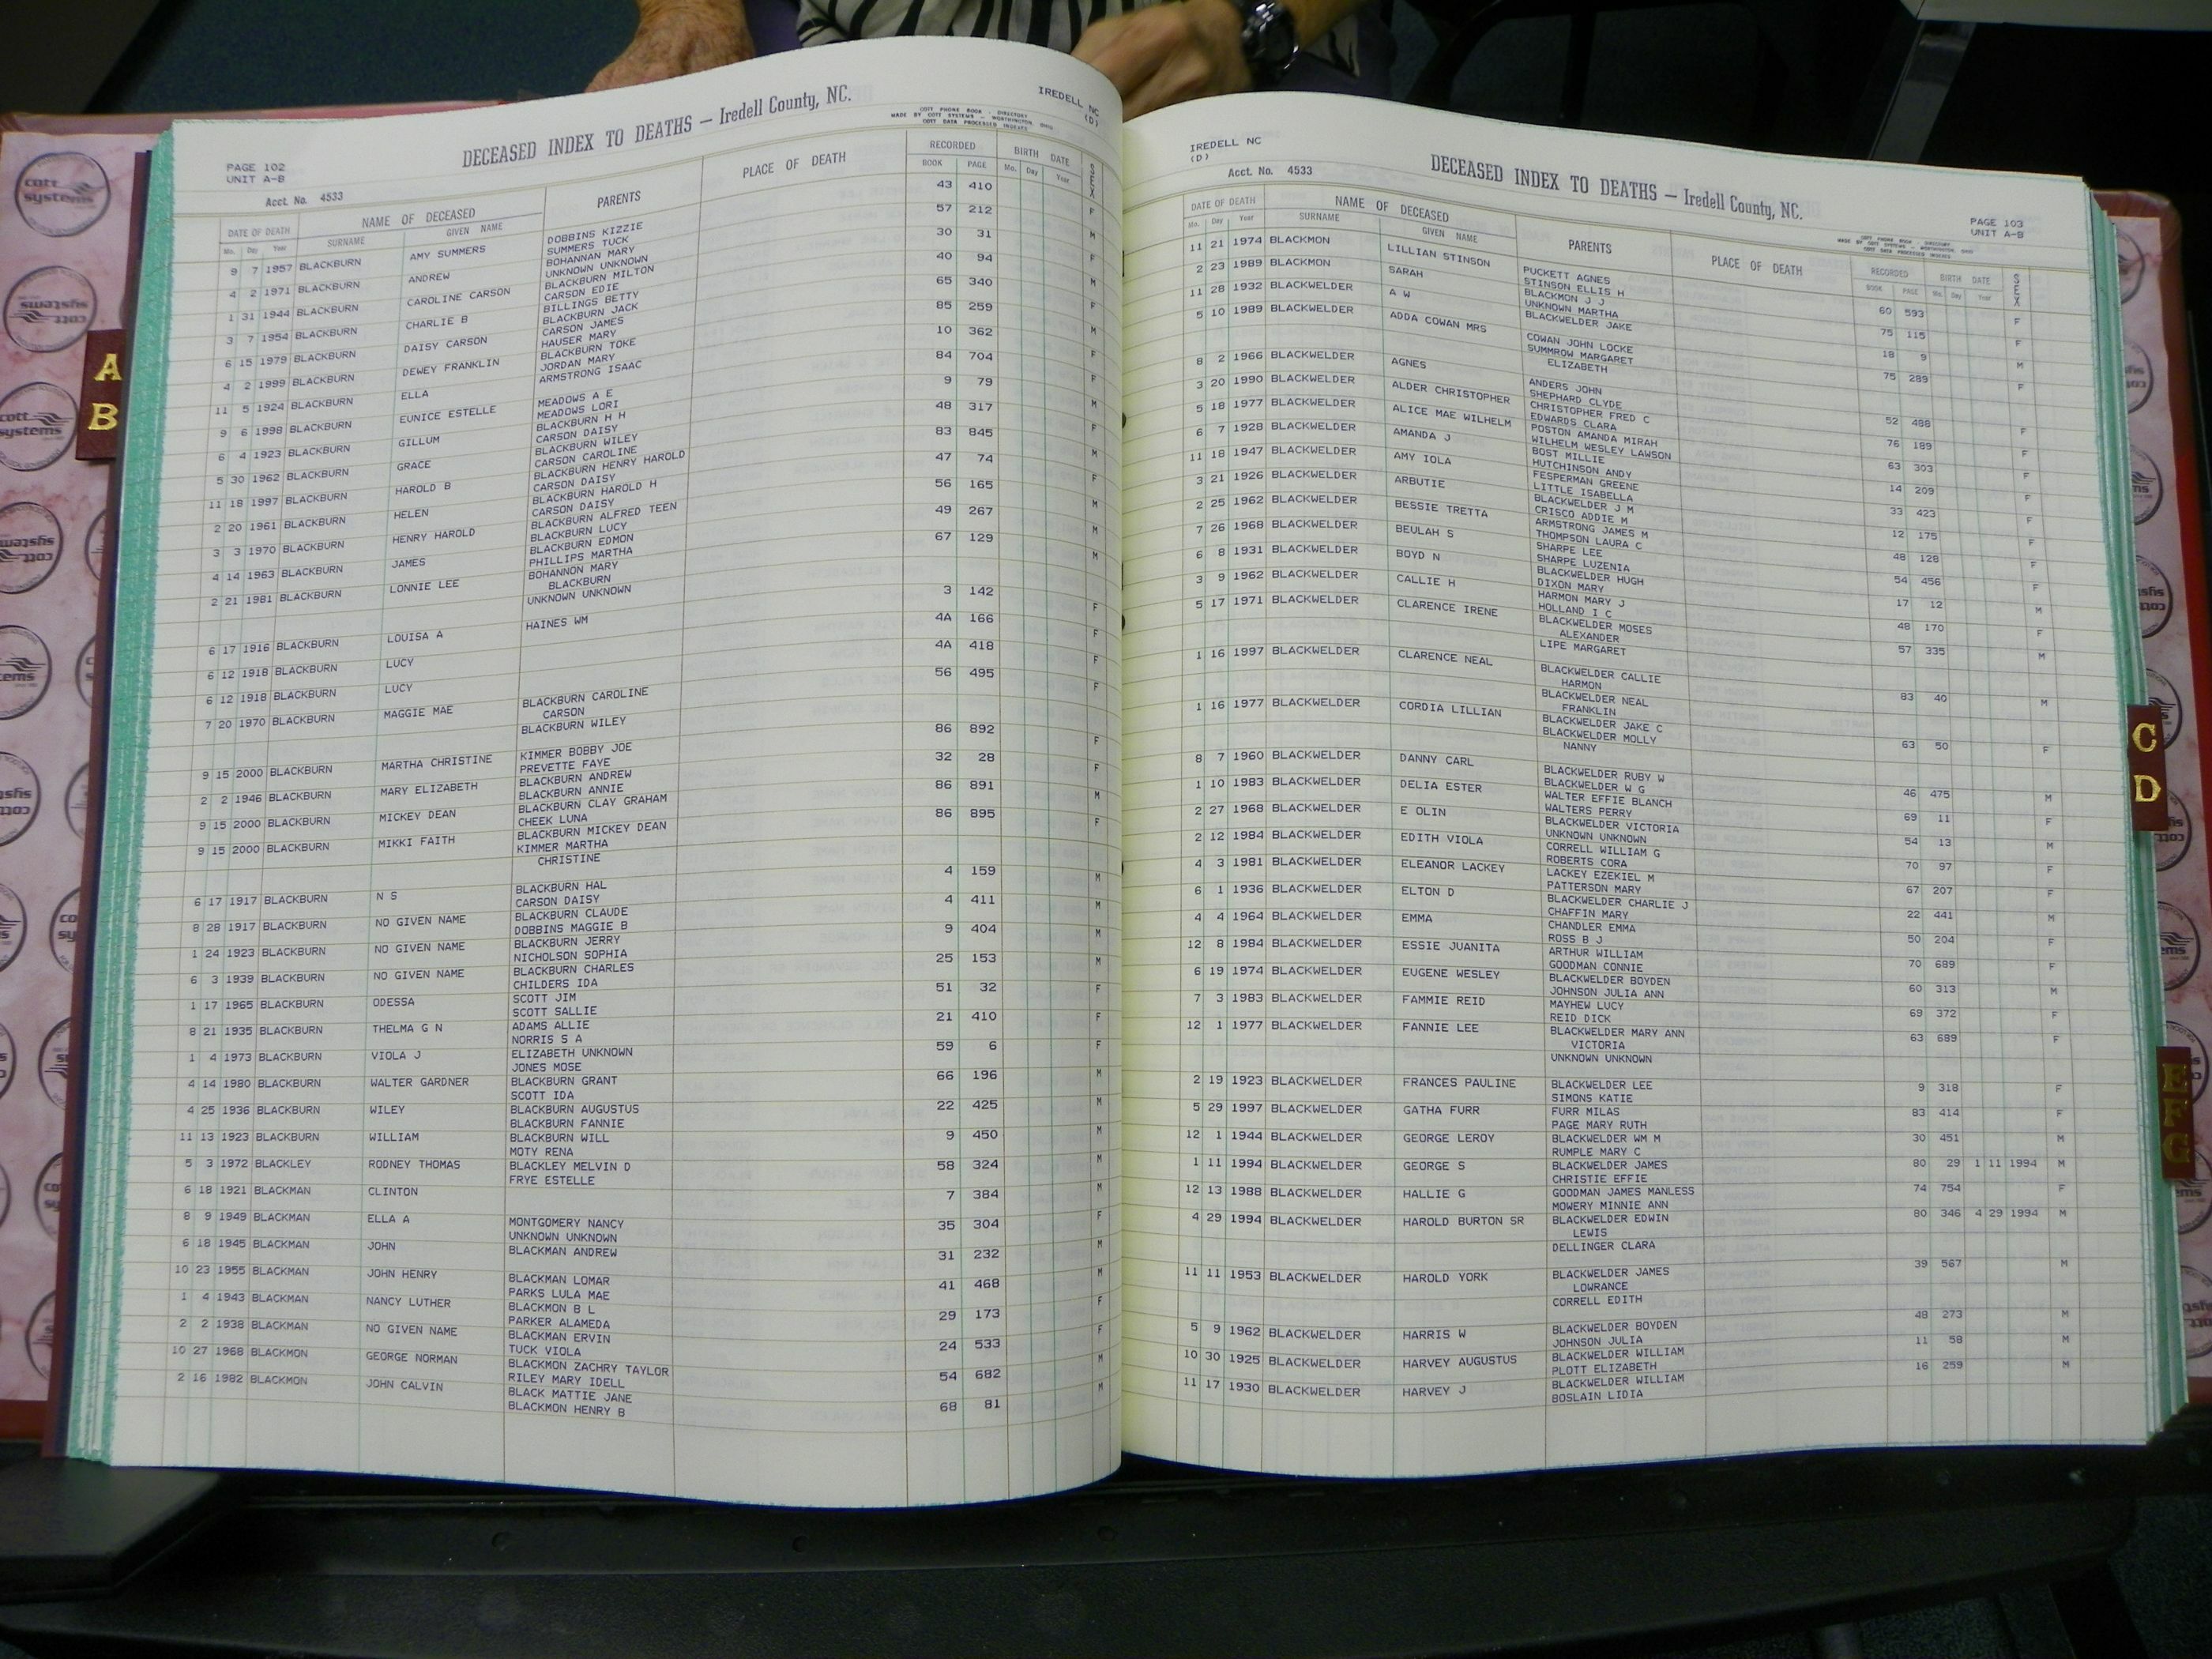 IREDELL NC
(D)
DECEASED INDEX TO DEATHS — Iredell County, NC.
MADE BY COTT SYSTEMS - WORTHINGTON, OHIO
COTT DATA PROCESSED INDEXES
PAGE 102
UNIT A-B
Acct. No. 4533
DATE OF DEATH NAME OF DECEASED PARENTS PLACE OF DEATH RECORDED BIRTH DATE SEX
Mo. Day Year SURNAME GIVEN NAME BOOK PAGE Mo. Day Year
9 7 1957 BLACKBURN AMY SUMMERS DOBBINS KIZZIE 43 410 F
SUMMERS TUCK
4 2 1971 BLACKBURN ANDREW BOHANNAN MARY 57 212 M
UNKNOWN UNKNOWN
1 31 1944 BLACKBURN CAROLINE CARSON BLACKBURN MILTON 30 31 F
CARSON EDIE
3 7 1954 BLACKBURN CHARLIE B BILLINGS BETTY 40 94 M
BLACKBURN JACK
6 15 1979 BLACKBURN DAISY CARSON CARSON JAMES 65 340 F
HAUSER MARY
4 2 1999 BLACKBURN DEWEY FRANKLIN BLACKBURN TOKE 85 259 M
JORDAN MARY
11 5 1924 BLACKBURN ELLA ARMSTRONG ISAAC 10 362 F
9 6 1998 BLACKBURN EUNICE ESTELLE MEADOWS A E 84 704 F
MEADOWS LORI
6 4 1923 BLACKBURN GILLUM BLACKBURN H H 9 79 M
CARSON DAISY
5 30 1962 BLACKBURN GRACE BLACKBURN WILEY 48 317 F
CARSON CAROLINE
11 18 1997 BLACKBURN HAROLD B BLACKBURN HENRY HAROLD 83 845 M
CARSON DAISY
2 20 1961 BLACKBURN HELEN BLACKBURN HAROLD H 47 74 F
CARSON DAISY
3 3 1970 BLACKBURN HENRY HAROLD BLACKBURN ALFRED TEEN 56 165 M
BLACKBURN LUCY
4 14 1963 BLACKBURN JAMES BLACKBURN EDMON 49 267 M
PHILLIPS MARTHA
2 21 1981 BLACKBURN LONNIE LEE BOHANNON MARY 67 129 M
BLACKBURN
UNKNOWN UNKNOWN
6 17 1916 BLACKBURN LOUISA A HAINES WM 3 142 F
6 12 1918 BLACKBURN LUCY 4A 166 F
6 12 1918 BLACKBURN LUCY 4A 418 F
7 20 1970 BLACKBURN MAGGIE MAE BLACKBURN CAROLINE 56 495 F
CARSON
BLACKBURN WILEY
9 15 2000 BLACKBURN MARTHA CHRISTINE KIMMER BOBBY JOE 86 892 F
PREVETTE FAYE
2 2 1946 BLACKBURN MARY ELIZABETH BLACKBURN ANDREW 32 28 F
BLACKBURN ANNIE
9 15 2000 BLACKBURN MICKEY DEAN BLACKBURN CLAY GRAHAM 86 891 M
CHEEK LUNA
9 15 2000 BLACKBURN MIKKI FAITH BLACKBURN MICKEY DEAN 86 895 F
KIMMER MARTHA
CHRISTINE
6 17 1917 BLACKBURN N S BLACKBURN HAL 4 159 M
CARSON DAISY
8 28 1917 BLACKBURN NO GIVEN NAME BLACKBURN CLAUDE 4 411 M
DOBBINS MAGGIE B
1 24 1923 BLACKBURN NO GIVEN NAME BLACKBURN JERRY 9 404 M
NICHOLSON SOPHIA
6 3 1939 BLACKBURN NO GIVEN NAME BLACKBURN CHARLES 25 153 M
CHILDERS IDA
1 17 1965 BLACKBURN ODESSA SCOTT JIM 51 32 F
SCOTT SALLIE
8 21 1935 BLACKBURN THELMA G N ADAMS ALLIE 21 410 F
NORRIS S A
1 4 1973 BLACKBURN VIOLA J ELIZABETH UNKNOWN 59 6 F
JONES MOSE
4 14 1980 BLACKBURN WALTER GARDNER BLACKBURN GRANT 66 196 M
SCOTT IDA
4 25 1936 BLACKBURN WILEY BLACKBURN AUGUSTUS 22 425 M
BLACKBURN FANNIE
11 13 1923 BLACKBURN WILLIAM BLACKBURN WILL 9 450 M
MOTY RENA
5 3 1972 BLACKLEY RODNEY THOMAS BLACKLEY MELVIN D 58 324 M
FRYE ESTELLE
6 18 1921 BLACKMAN CLINTON 7 384 M
8 9 1949 BLACKMAN ELLA A MONTGOMERY NANCY 35 304 F
UNKNOWN UNKNOWN
6 18 1945 BLACKMAN JOHN BLACKMAN ANDREW 31 232 M
10 23 1955 BLACKMAN JOHN HENRY BLACKMAN LOMAR 41 468 M
PARKS LULA MAE
1 4 1943 BLACKMAN NANCY LUTHER BLACKMON B L 29 173 F
PARKER ALAMEDA
2 2 1938 BLACKMAN NO GIVEN NAME BLACKMAN ERVIN 24 533 F
TUCK VIOLA
10 27 1968 BLACKMON GEORGE NORMAN BLACKMON ZACHRY TAYLOR 54 682 M
RILEY MARY IDELL
2 16 1982 BLACKMON JOHN CALVIN BLACK MATTIE JANE 68 81 M
BLACKMON HENRY B
IREDELL NC
(D)
DECEASED INDEX TO DEATHS — Iredell County, NC.
PAGE 103
UNIT A-B
Acct. No. 4533
DATE OF DEATH NAME OF DECEASED PARENTS PLACE OF DEATH RECORDED BIRTH DATE SEX
Mo. Day Year SURNAME GIVEN NAME BOOK PAGE Mo. Day Year
11 21 1974 BLACKMON LILLIAN STINSON PUCKETT AGNES 60 593 F
STINSON ELLIS H
2 23 1989 BLACKMON SARAH BLACKMON J J 75 115 F
UNKNOWN MARTHA
11 28 1932 BLACKWELDER A W BLACKWELDER JAKE 18 9 M
5 10 1989 BLACKWELDER ADDA COWAN MRS COWAN JOHN LOCKE 75 289 F
SUMMROW MARGARET
ELIZABETH
8 2 1966 BLACKWELDER AGNES ANDERS JOHN 52 488 F
SHEPHARD CLYDE
3 20 1990 BLACKWELDER ALDER CHRISTOPHER CHRISTOPHER FRED C 76 189 F
EDWARDS CLARA
5 18 1977 BLACKWELDER ALICE MAE WILHELM POSTON AMANDA MIRAH 63 303 F
WILHELM WESLEY LAWSON
6 7 1928 BLACKWELDER AMANDA J BOST MILLIE 14 209 F
HUTCHINSON ANDY
11 18 1947 BLACKWELDER AMY IOLA FESPERMAN GREENE 33 423 F
LITTLE ISABELLA
3 21 1926 BLACKWELDER ARBUTIE BLACKWELDER J M 12 175 F
CRISCO ADDIE M
2 25 1962 BLACKWELDER BESSIE TRETTA ARMSTRONG JAMES M 48 128 F
THOMPSON LAURA C
7 26 1968 BLACKWELDER BEULAH S SHARPE LEE 54 456 F
SHARPE LUZENIA
6 8 1931 BLACKWELDER BOYD N BLACKWELDER HUGH 17 12 M
DIXON MARY
3 9 1962 BLACKWELDER CALLIE H HARMON MARY J 48 170 F
HOLLAND I C
5 17 1971 BLACKWELDER CLARENCE IRENE BLACKWELDER MOSES 57 335 M
ALEXANDER
LIPE MARGARET
1 16 1997 BLACKWELDER CLARENCE NEAL BLACKWELDER CALLIE 83 40 M
HARMON
BLACKWELDER NEAL
FRANKLIN
1 16 1977 BLACKWELDER CORDIA LILLIAN BLACKWELDER JAKE C 63 50 F
BLACKWELDER MOLLY
NANNY
8 7 1960 BLACKWELDER DANNY CARL BLACKWELDER RUBY W 46 475 M
BLACKWELDER W G
1 10 1983 BLACKWELDER DELIA ESTER WALTER EFFIE BLANCH 69 11 F
WALTERS PERRY
2 27 1968 BLACKWELDER E OLIN BLACKWELDER VICTORIA 54 13 M
UNKNOWN UNKNOWN
2 12 1984 BLACKWELDER EDITH VIOLA CORRELL WILLIAM G 70 97 F
ROBERTS CORA
4 3 1981 BLACKWELDER ELEANOR LACKEY LACKEY EZEKIEL M 67 207 F
PATTERSON MARY
6 1 1936 BLACKWELDER ELTON D BLACKWELDER CHARLIE J 22 441 M
CHAFFIN MARY
4 4 1964 BLACKWELDER EMMA CHANDLER EMMA 50 204 F
ROSS B J
12 8 1984 BLACKWELDER ESSIE JUANITA ARTHUR WILLIAM 70 689 F
GOODMAN CONNIE
6 19 1974 BLACKWELDER EUGENE WESLEY BLACKWELDER BOYDEN 60 313 M
JOHNSON JULIA ANN
7 3 1983 BLACKWELDER FAMMIE REID MAYHEW LUCY 69 372 F
REID DICK
12 1 1977 BLACKWELDER FANNIE LEE BLACKWELDER MARY ANN 63 689 F
VICTORIA
UNKNOWN UNKNOWN
2 19 1923 BLACKWELDER FRANCES PAULINE BLACKWELDER LEE 9 318 F
SIMONS KATIE
5 29 1997 BLACKWELDER GATHA FURR FURR MILAS 83 414 F
PAGE MARY RUTH
12 1 1944 BLACKWELDER GEORGE LEROY BLACKWELDER WM M 30 451 M
RUMPLE MARY C
1 11 1994 BLACKWELDER GEORGE S BLACKWELDER JAMES 80 29 1 11 1994 M
CHRISTIE EFFIE
12 13 1988 BLACKWELDER HALLIE G GOODMAN JAMES MANLESS 74 754 F
MOWERY MINNIE ANN
4 29 1994 BLACKWELDER HAROLD BURTON SR BLACKWELDER EDWIN 80 346 4 29 1994 M
LEWIS
DELLINGER CLARA
11 11 1953 BLACKWELDER HAROLD YORK BLACKWELDER JAMES 39 567 M
LOWRANCE
CORRELL EDITH
5 9 1962 BLACKWELDER HARRIS W BLACKWELDER BOYDEN 48 273 M
JOHNSON JULIA
10 30 1925 BLACKWELDER HARVEY AUGUSTUS BLACKWELDER WILLIAM 11 58 M
PLOTT ELIZABETH
11 17 1930 BLACKWELDER HARVEY J BLACKWELDER WILLIAM 16 259 M
BOSLAIN LIDIA
A
B
C
D
E
F
G
cott
systems